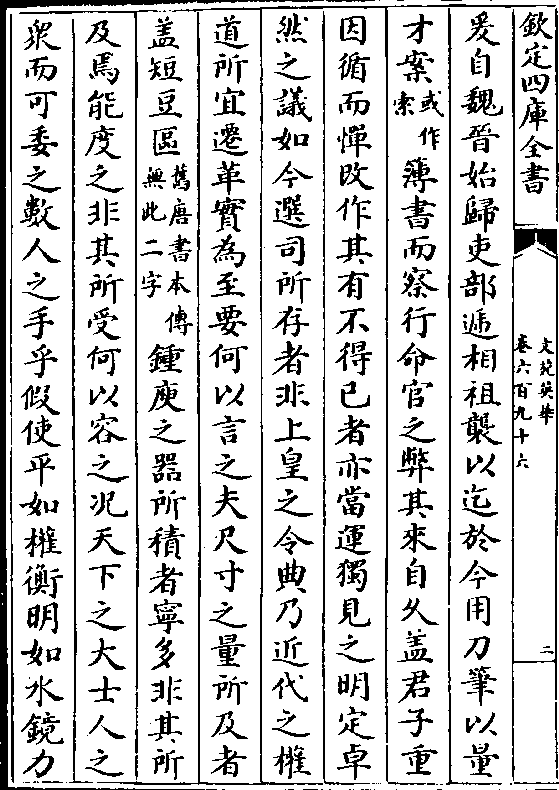 欽定四庫全書
文苑英華
卷六百九十六
二
爰自魏晉始歸吏部遞相祖襲以迄於今用刀筆以量
才案或作索簿書而察行命官之弊其來自久盖君子重
因循而憚改作其有不得已者亦當運獨見之明定卓
然之議如今選司所存者非上皇之令典乃近代之權
道所宜遷革實為至要何以言之夫尺寸之量所及者
盖短豆區舊唐書本傳無此二字鍾庾之器所積者寧多非其所
及焉能度之非其所受何以容之况天下之大士人之
衆而可委之數人之手乎假使平如權衡明如水鏡力